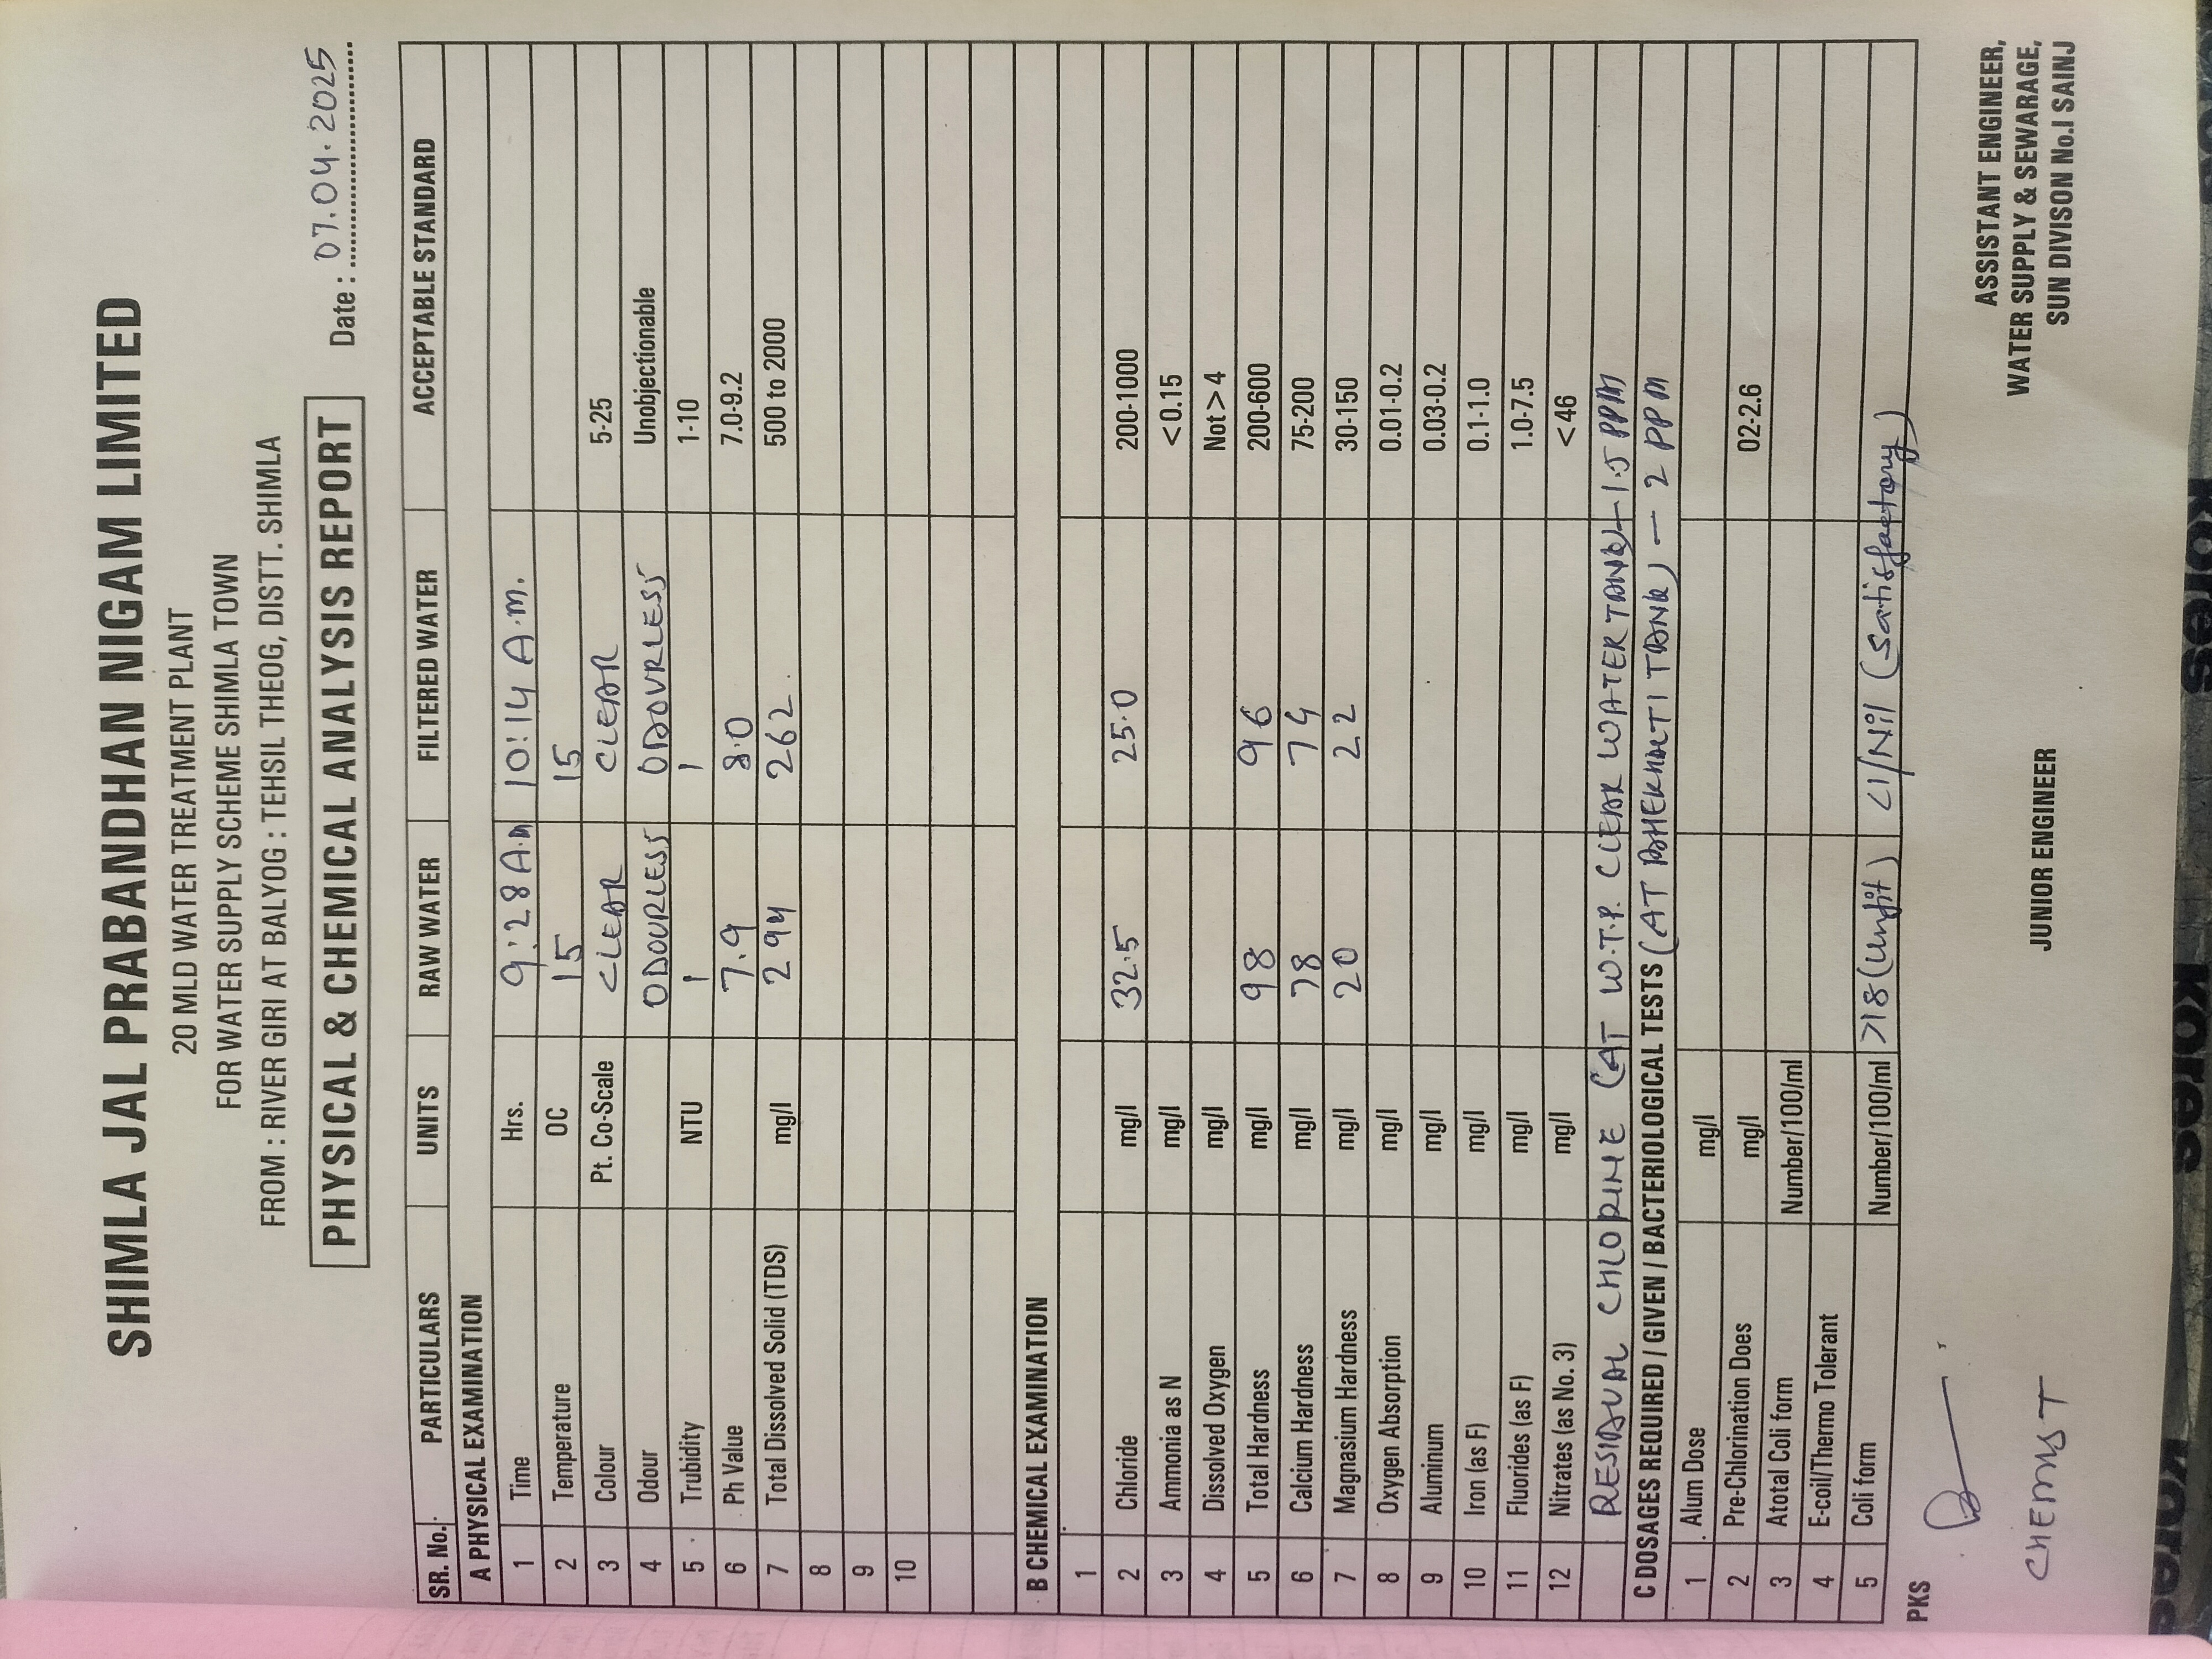 SHIMLA JAL PRABANDHAN NIGAM LIMITED
20 MLD WATER TREATMENT PLANT
FOR WATER SUPPLY SCHEME SHIMLA TOWN
FROM : RIVER GIRI AT BALYOG : TEHSIL THEOG, DISTT. SHIMLA
PHYSICAL & CHEMICAL ANALYSIS REPORT Date : 07.04.2025
SR. No. PARTICULARS UNITS RAW WATER FILTERED WATER ACCEPTABLE STANDARD
A PHYSICAL EXAMINATION
1 Time Hrs. 9:28 A.M 10:14 A.M.
2 Temperature OC 15 15
3 Colour Pt. Co-Scale CLEAR CLEAR 5-25
4 Odour ODOURLESS ODOURLESS Unobjectionable
5 Trubidity NTU 1 1 1-10
6 Ph Value 7.9 8.0 7.0-9.2
7 Total Dissolved Solid (TDS) mg/l 294 262 500 to 2000
8
9
10
B CHEMICAL EXAMINATION
1
2 Chloride mg/l 32.5 25.0 200-1000
3 Ammonia as N mg/l <0.15
4 Dissolved Oxygen mg/l Not > 4
5 Total Hardness mg/l 98 96 200-600
6 Calcium Hardness mg/l 78 74 75-200
7 Magnasium Hardness mg/l 20 22 30-150
8 Oxygen Absorption mg/l 0.01-0.2
9 Aluminum mg/l 0.03-0.2
10 Iron (as F) mg/l 0.1-1.0
11 Fluorides (as F) mg/l 1.0-7.5
12 Nitrates (as No. 3) mg/l <46
RESIDUAL CHLORINE (AT W.T.P. CLEAR WATER TANK)-1.5 PPM
C DOSAGES REQUIRED / GIVEN / BACTERIOLOGICAL TESTS (AT DHEKHALTI TANK) - 2 PPM
1 Alum Dose mg/l
2 Pre-Chlorination Does mg/l 02-2.6
3 Atotal Coli form Number/100/ml
4 E-coil/Thermo Tolerant
5 Coli form Number/100/ml >18 (unfit) <1/Nil (satisfactory)
PKS
CHEMIST
JUNIOR ENGINEER
ASSISTANT ENGINEER,
WATER SUPPLY & SEWARAGE,
SUN DIVISON No.I SAINJ
Kores
Kores
Kores